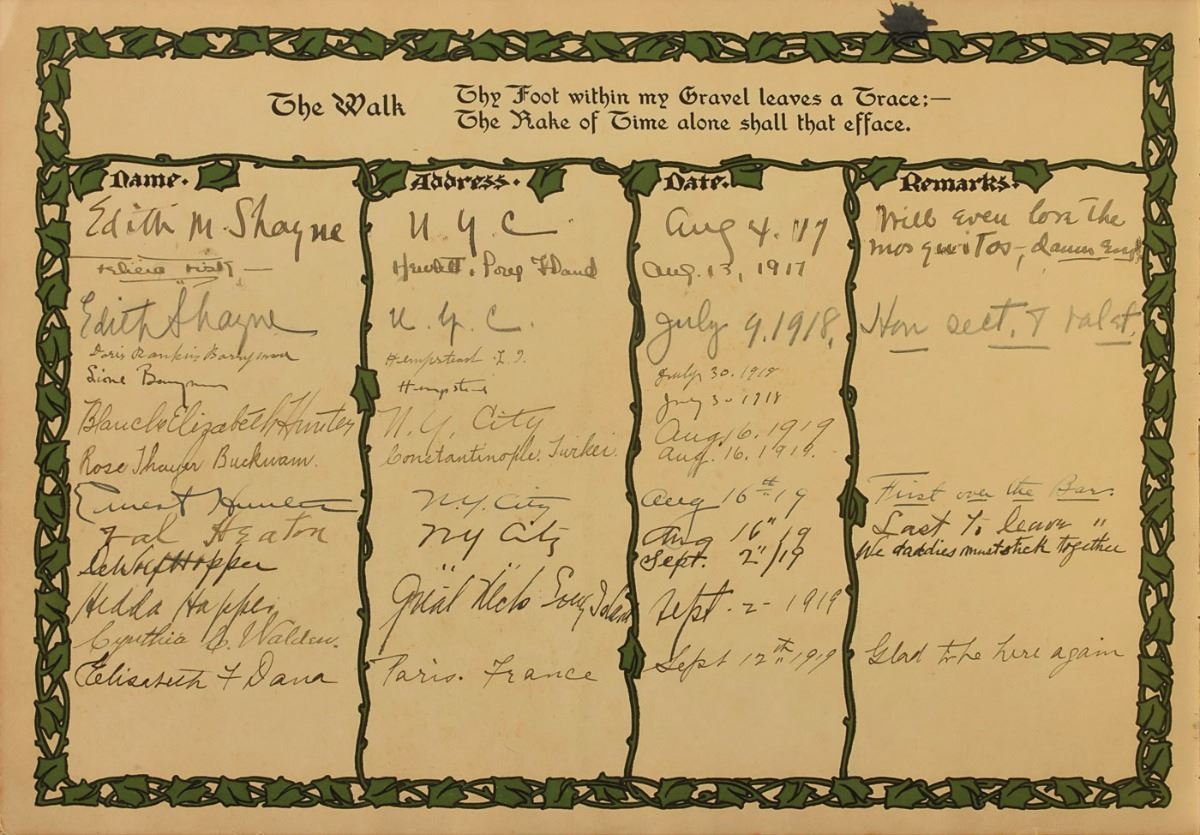 The Walk
Thy Foot within my Gravel leaves a Trace:—
The Rake of Time alone shall that efface.
Name. Address. Date. Remarks.
Edith M. Shayne N. Y. C. Aug 4. '17 Will even love the
mosquitos—, damn
Hewlett. Long Island Aug. 13, 1917
Edith Shayne N. Y. C. July 9. 1918.
Doris Rankin Barrymore Hempstead L. I. July 30. 1918
Lionel Barrymore July 30 1918
Blanche Elizabeth Hunter N. Y. City Aug 16. 1919
Rose Thayer Constantinople. Aug. 16. 1919.
Ernest Hunter N.Y. City Aug 16th 19 First over the Bar.
Hal Heaton NY City Aug 16" 19 Last to leave "
DeWolf Hopper " " Sept. 2" /19 We daddies must stick together
Hedda Hopper Long Island Sept. 2 - 1919
Cynthia C. Walden.
Elisabeth F Dana Paris. France Sept 12th 1919 Glad to be here again